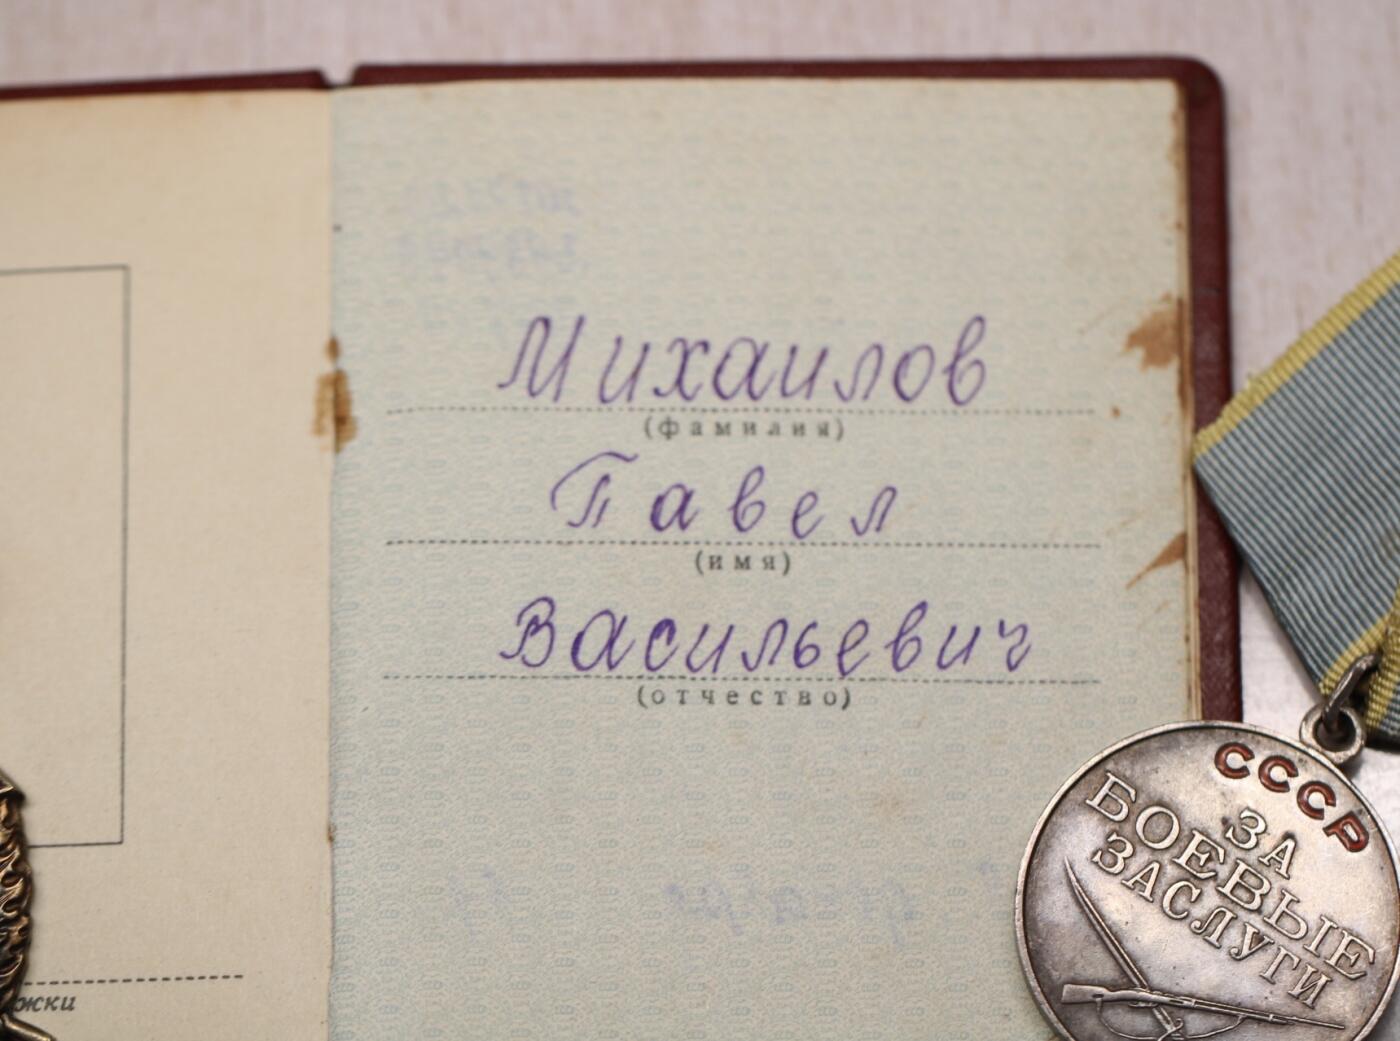 Михаилов
(фамилия)
Павел
(имя)
Васильевич
(отчество)
СССР
ЗА
БОЕВЫЕ
ЗАСЛУГИ